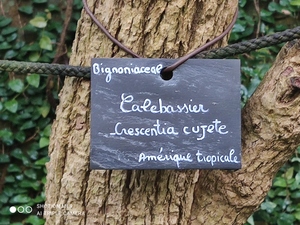 Bignoniaceae
Calebassier
Crescentia cujete
Amérique tropicale
SHOT ON MI A2
AI DUAL CAMERA